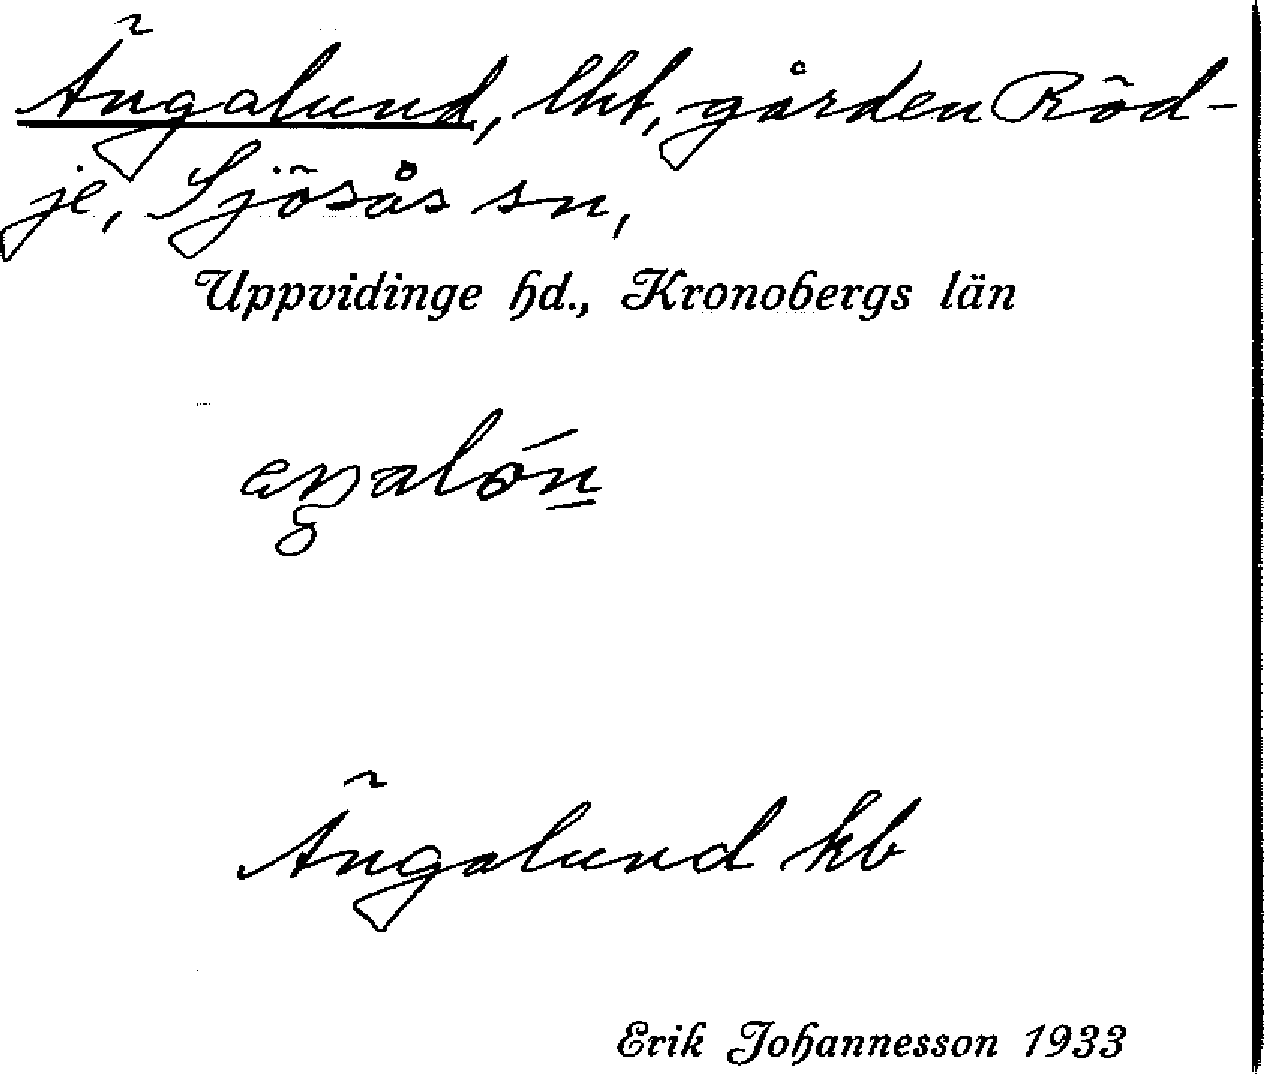 Ängalund, lht, gården Röd-
je, Sjösås sn,
Uppvidinge hd., Kronobergs län
Ängalund kb
Erik Johannesson 1933